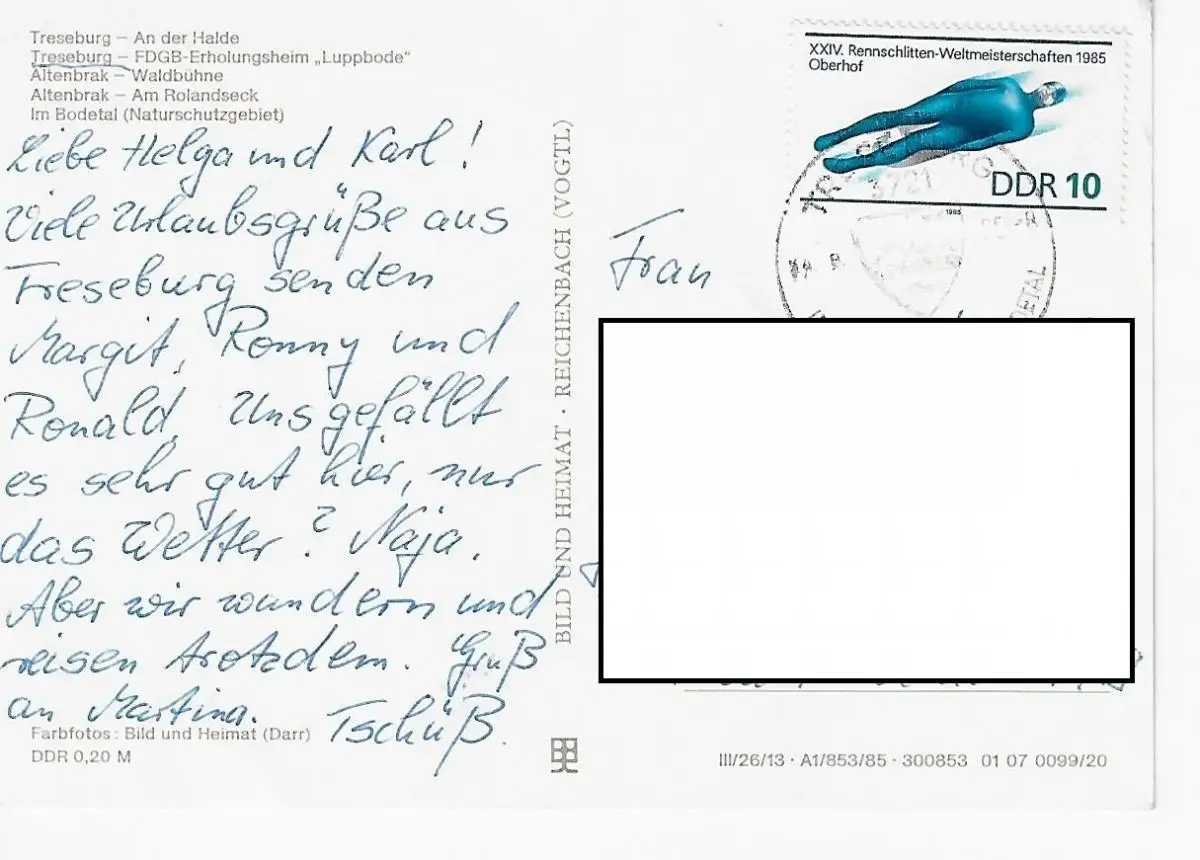 Treseburg – An der Halde
Treseburg – FDGB-Erholungsheim „Luppbode"
Altenbrak – Waldbühne
Altenbrak – Am Rolandseck
Im Bodetal (Naturschutzgebiet)
Liebe Helga und Karl!
Viele Urlaubsgrüße aus
Treseburg senden
Margit, Ronny und
Ronald. Uns gefällt
es sehr gut hier, nur
das Wetter? Naja.
Aber wir wandern und
reisen trotzdem. Gruß
an Martina. Tschüß.
Farbfotos: Bild und Heimat (Darr)
DDR 0,20 M
BILD UND HEIMAT · REICHENBACH (VOGTL)
XXIV. Rennschlitten-Weltmeisterschaften 1985
Oberhof
DDR 10
1985
3721
Frau
III/26/13 · A1/853/85 · 300853 01 07 0099/20